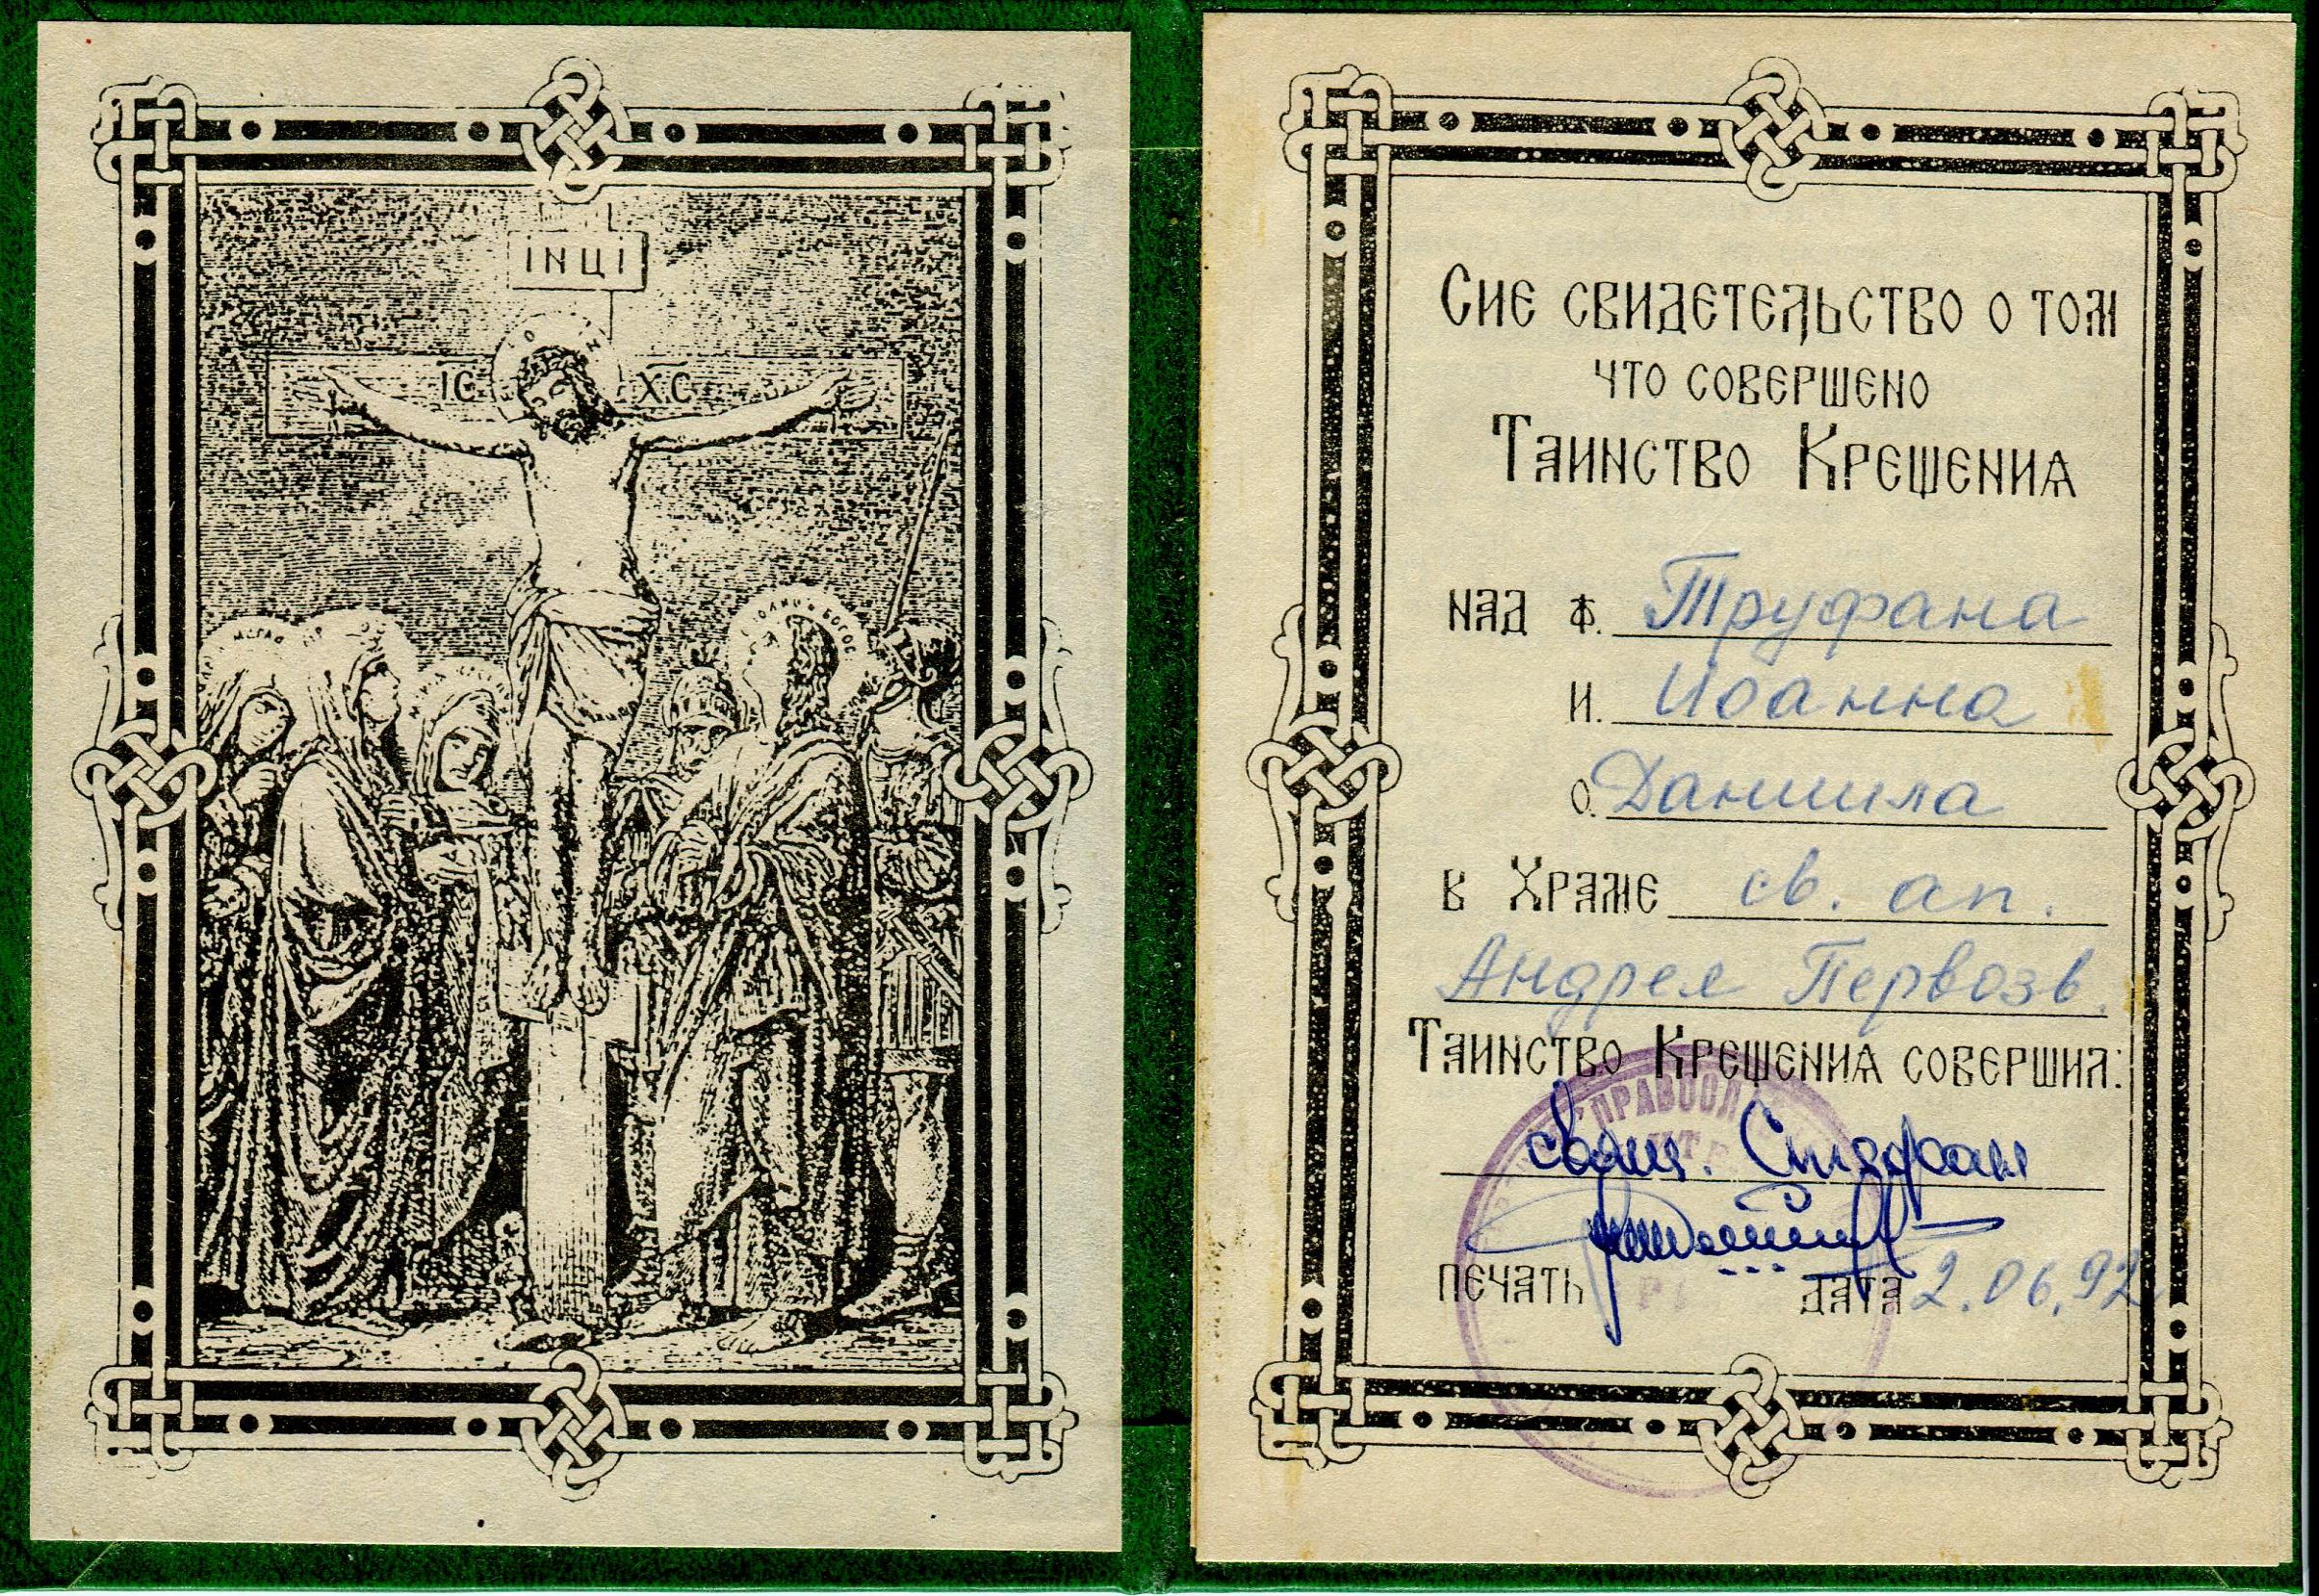 ІНЦІ
ІС ХС
Сие свидетельство о том
что совершено
Таинство Крещения
над ф. Труфана
и. Иоанна
о. Даниила
в Храме св. ап.
Андрея Первозв.
Таинство Крещения совершил:
свящ. Стефан
печать дата 2.06.92